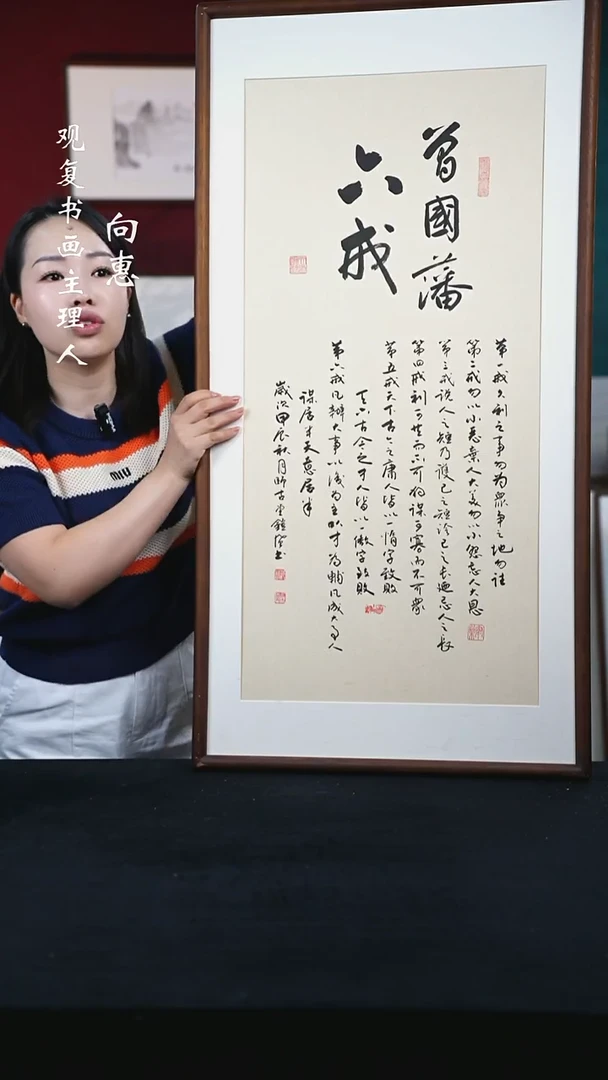 观复书画主理人
向惠
曾國藩
六戒
第一戒久利之事勿为眾争之地勿往
第二戒勿以小恶棄人大美勿以小怨忘人大恩
第三戒说人之短乃護己之短誇己之長廼忌人之長
第四戒利可共而不可獨谋可寡而不可眾
第五戒天下古今之庸人皆以一惰字致败
古今之才人皆以一傲字致败
第六戒凡辦大事以識为主以才为輔凡成大事人
謀居半天意居半
歲次甲辰秋月師古堂書
MIU